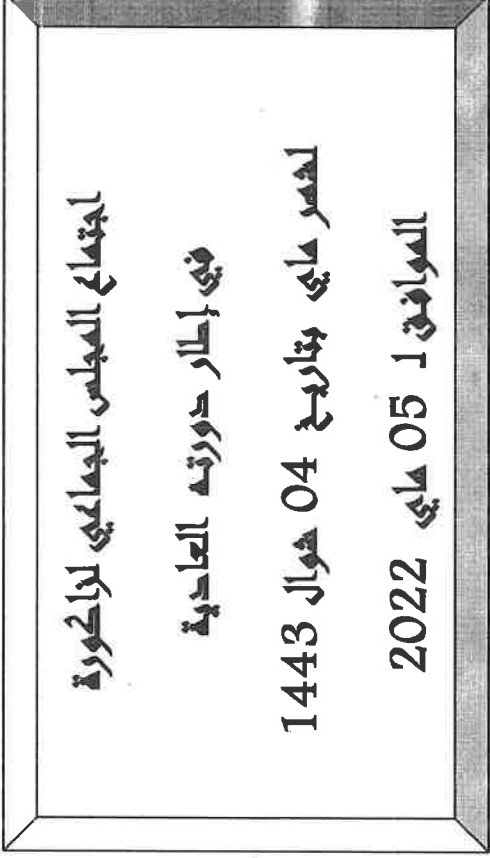 اجتماع المجلس الجماعي لزاكورة
في إطار دورته العادية
لشهر ماي بتاريخ 04 شوال 1443
الموافق ل 05 ماي 2022